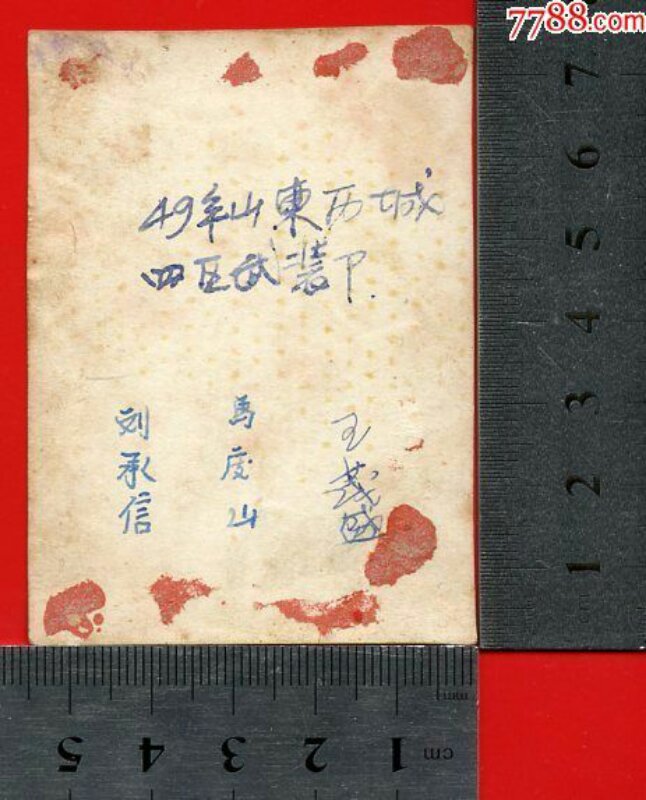 7788.com
49年山東历城
四区武装P.
刘承信
馬庆山
王茂盛
7
6
5
4
3
2
1
mm
5 4 3 2 1 cm